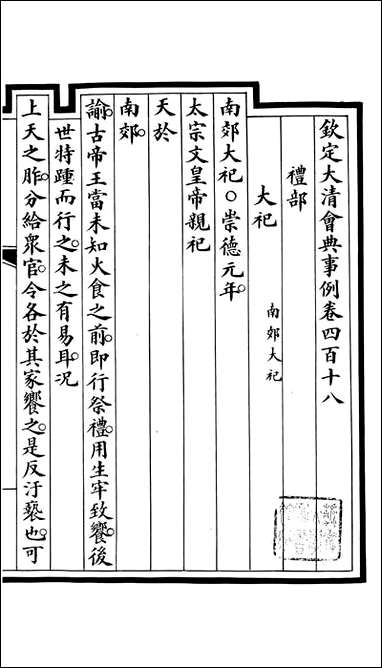 欽定大清會典事例卷四百十八
禮部
大祀
南郊大祀
南郊大祀○崇德元年。
太宗文皇帝親祀
天於
南郊。
諭。古帝王當未知火食之前。即行祭禮。用生牢致饗。後
世特踵而行之。未之有易耳。況
上天之胙。分給衆官。令各於其家饗之。是反汙褻也。可